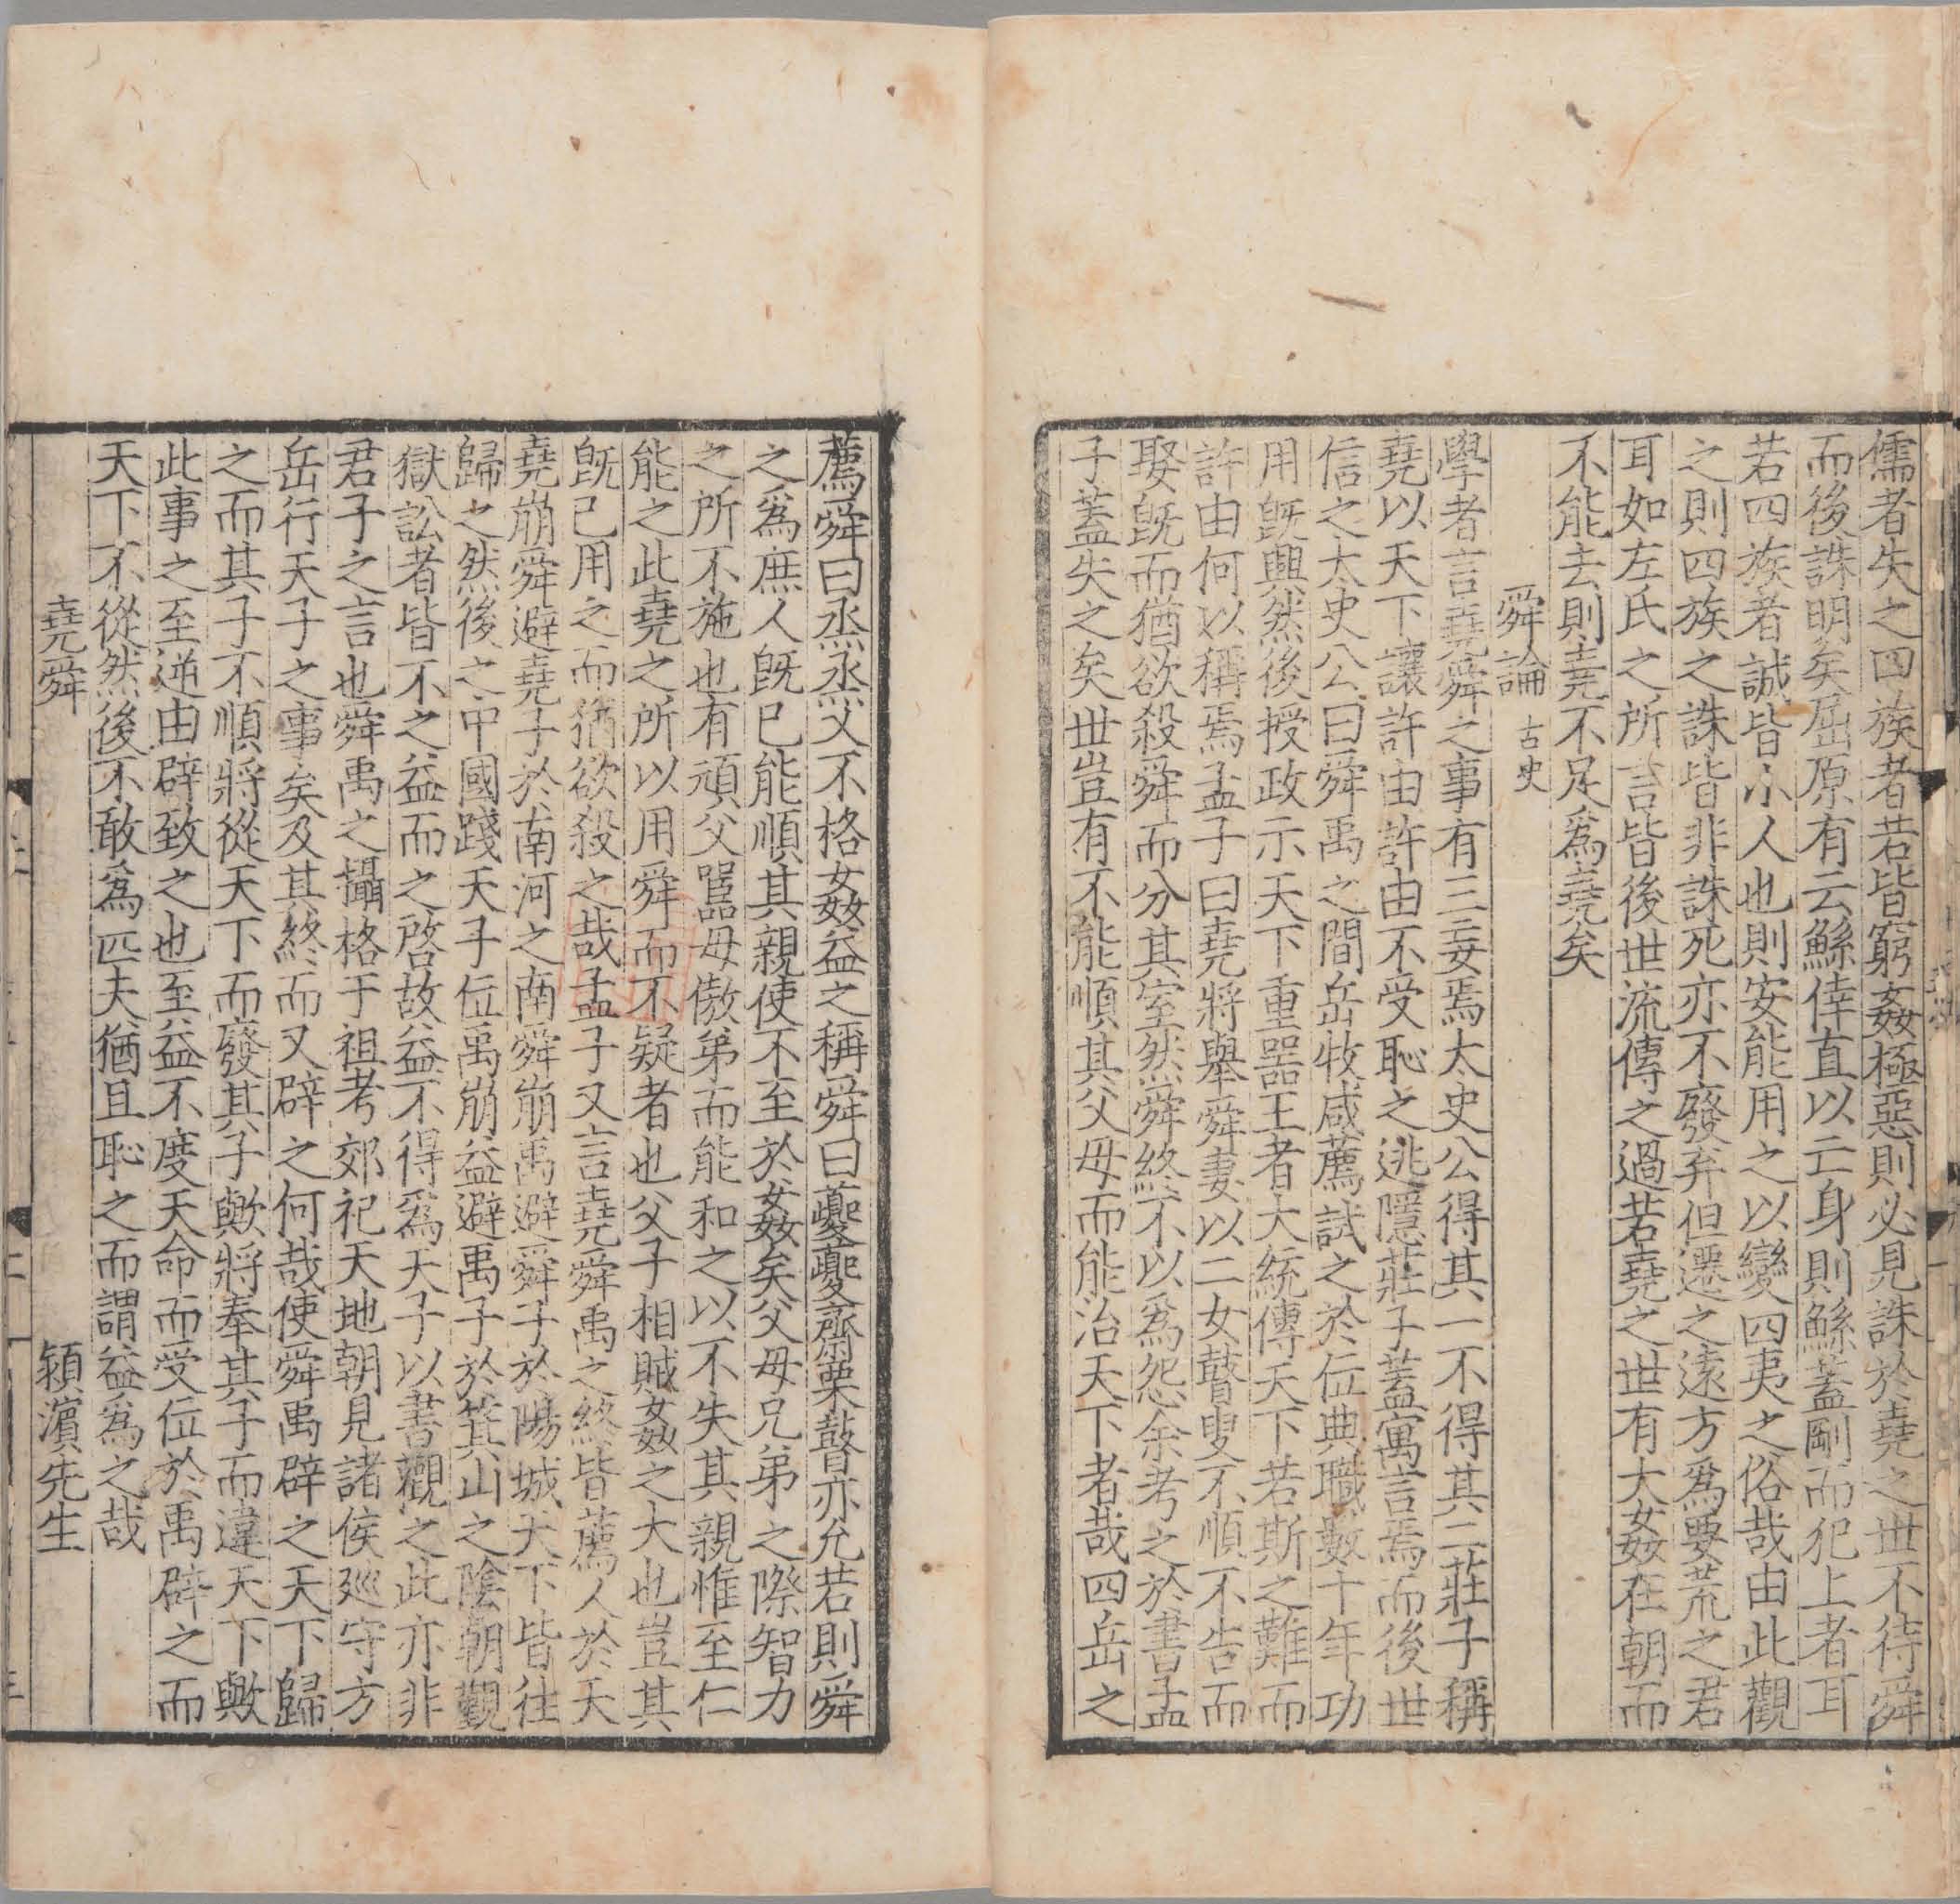 儒者失之四族者若皆窮姦極惡則必見誅於堯之世不待舜
而後誅明矣屈原有云鯀倖直以亡身則鯀蓋剛而犯上者耳
若四族者誠皆小人也則安能用之以變四夷之俗哉由此觀
之則四族之誅皆非誅死亦不廢弃但遷之遠方爲要荒之君
耳如左氏之所言皆後世流傳之過若堯之世有大姦在朝而
不能去則堯不足爲堯矣
舜論 古史
學者言堯舜之事有三妄焉太史公得其一不得其二莊子稱
堯以天下讓許由許由不受恥之逃隱莊子蓋寓言焉而後世
信之太史公曰舜禹之間岳牧咸薦試之於位典職數十年功
用既興然後授政示天下重噐王者大統傳天下若斯之難而
許由何以稱焉孟子曰堯將舉舜妻以二女瞽叟不順不告而
娶既而猶欲殺舜而分其室然舜終不以爲怨余考之於書孟
子蓋失之矣世豈有不能順其父母而能治天下者哉四岳之
薦舜曰烝烝乂不格姦益之稱舜曰夔夔齋栗瞽亦允若則舜
之爲庶人既已能順其親使不至於姦矣父母兄弟之際智力
之所不施也有頑父嚚母傲弟而能和之以不失其親惟至仁
能之此堯之所以用舜而不疑者也父子相賊姦之大也豈其
既已用之而猶欲殺之哉孟子又言堯舜禹之終皆薦人於天
堯崩舜避堯子於南河之南舜崩禹避舜子於陽城天下皆往
歸之然後之中國踐天子位禹崩益避禹子於箕山之陰朝覲
獄訟者皆不之益而之啓故益不得爲天子以書觀之此亦非
君子之言也舜禹之攝格于祖考郊祀天地朝見諸侯廵守方
岳行天子之事矣及其終而又辟之何哉使舜禹辟之天下歸
之而其子不順將從天下而廢其子歟將奉其子而違天下歟
此事之至逆由辟致之也至益不度天命而受位於禹辟之而
天下不從然後不敢爲匹夫猶且恥之而謂益爲之哉
堯舜 潁濱先生